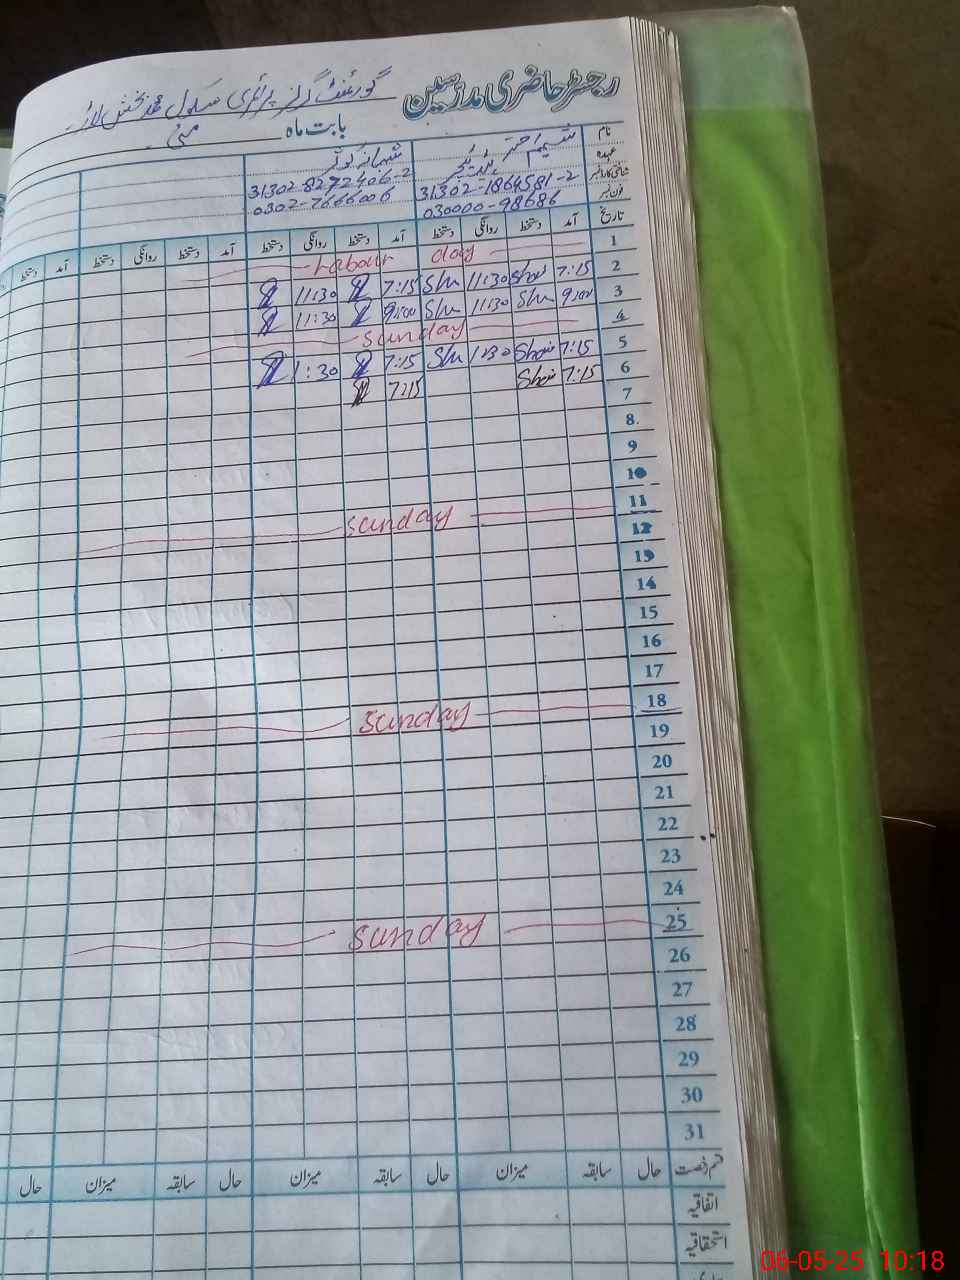 رجسٹر حاضری مدرسین گورنمنٹ گرلز پرائمری سکول محمد بخش لاڑ
بابت ماہ مئی
نام
عہدہ
شناختی کارڈ نمبر 31302-1864581-2 31302-8272406-2
فون نمبر 030000-98686 0302-7666006
تاریخ آمد دستخط روانگی دستخط آمد دستخط روانگی دستخط آمد دستخط روانگی دستخط آمد دستخط
1 Labour day
2 7:15 11:30 7:15 11:30
3 9:00 11:30 9:00 11:30
4 Sunday
5 7:15 1:30 7:15 1:30
6 7:15 7:15
7
8
9
10
11 Sunday
12
13
14
15
16
17
18 Sunday
19
20
21
22
23
24
25 Sunday
26
27
28
29
30
31
قسم رخصت حال سابقہ میزان حال سابقہ میزان حال سابقہ میزان حال
اتفاقیہ
استحقاقیہ
06-05-25 10:18